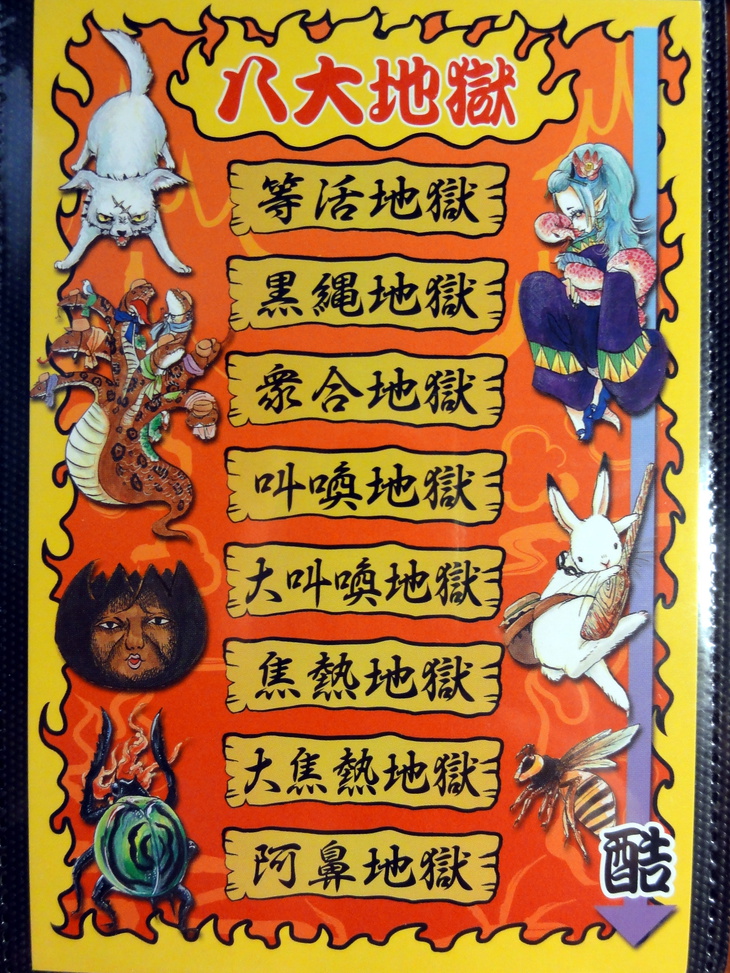 八大地獄
等活地獄
黒縄地獄
衆合地獄
叫喚地獄
大叫喚地獄
焦熱地獄
大焦熱地獄
阿鼻地獄
酷